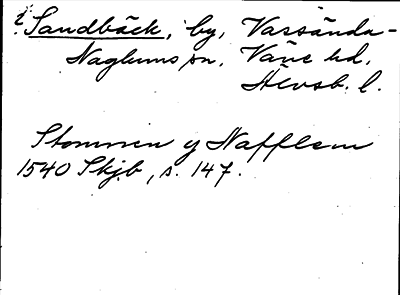 ? Sandbäck, by, Varsända-
Naglums sn, Väne hd,
Älvsb. l.
Stommen y Nafflem
1540 Skjb, s. 147.